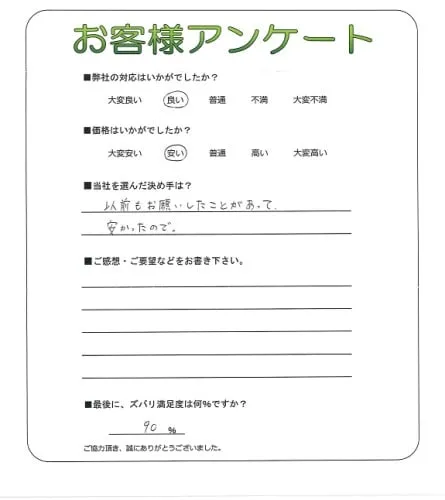 お客様アンケート
■弊社の対応はいかがでしたか？
大変良い 良い 普通 不満 大変不満
■価格はいかがでしたか？
大変安い 安い 普通 高い 大変高い
■当社を選んだ決め手は？
以前もお願いしたことがあって、
安かったので。
■ご感想・ご要望などをお書き下さい。
■最後に、ズバリ満足度は何%ですか？
90 %
ご協力頂き、誠にありがとうございました。